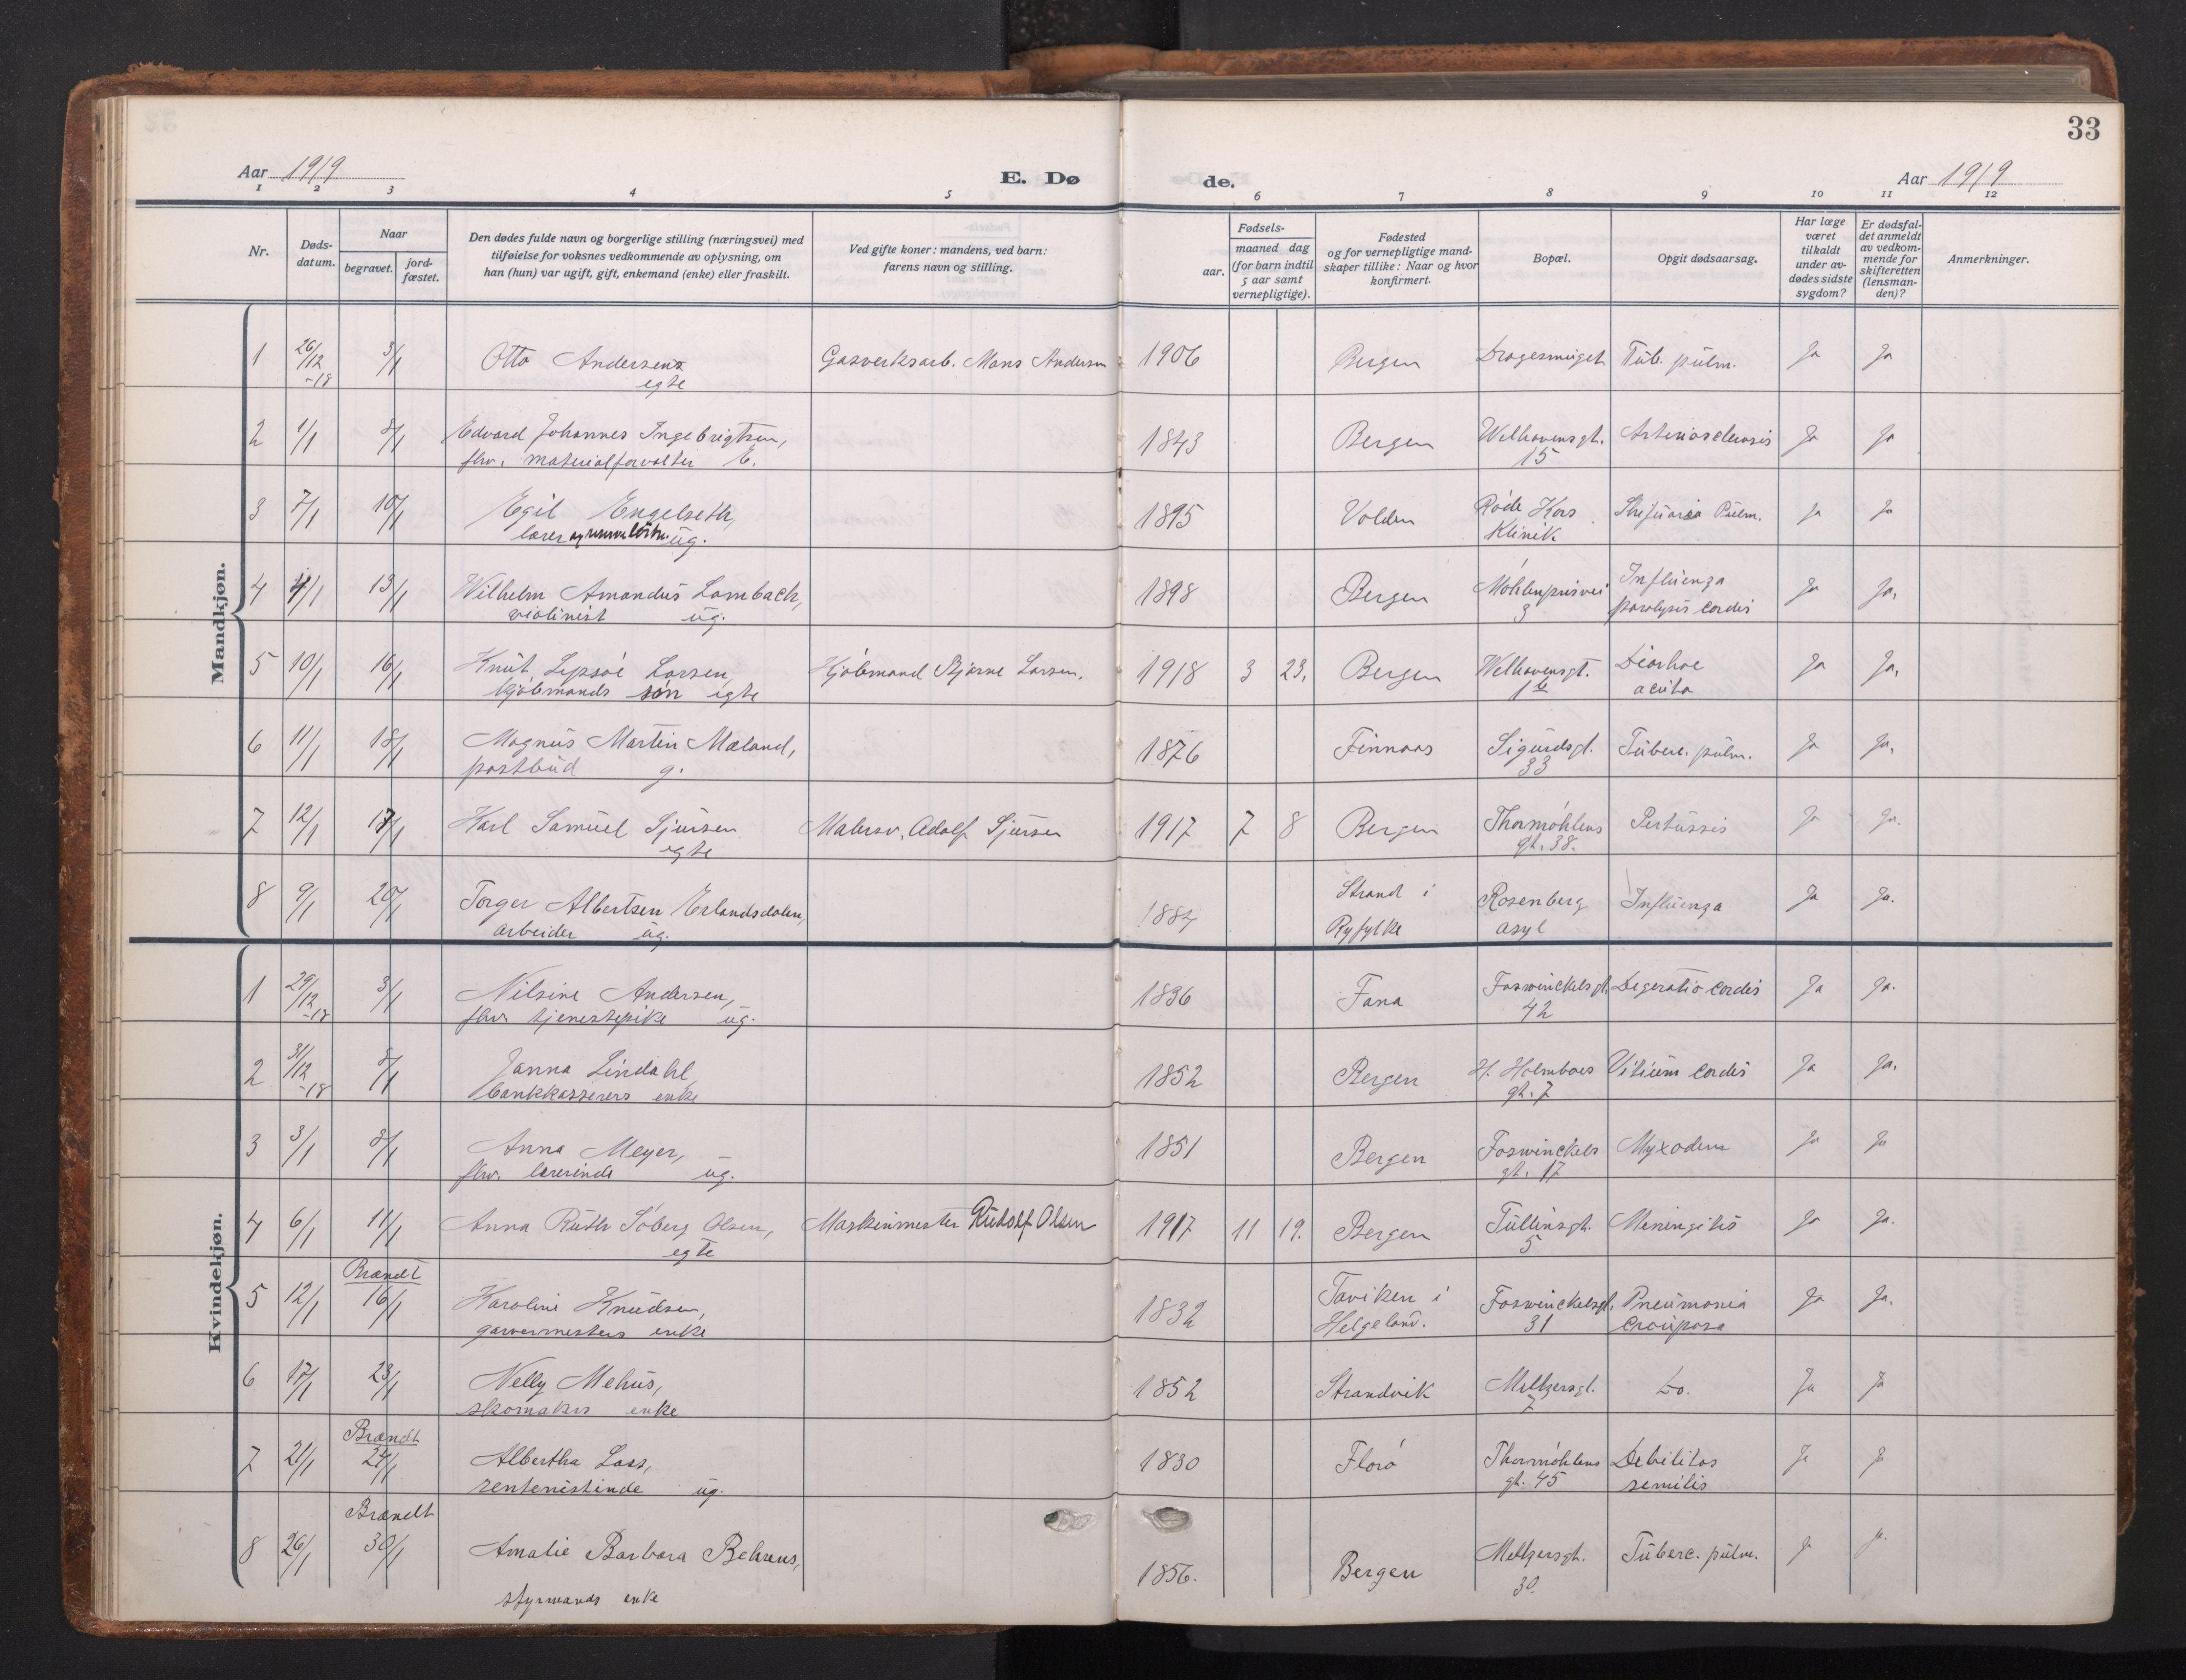 33
Aar 1919 E. Dø de. Aar 1919
1 2 3 4 5 6 7 8 9 10 11 12
Nr.
Døds-
datum.
Naar
begravet.
jord-
fæstet.
Den dødes fulde navn og borgerlige stilling (næringsvei) med
tilføielse for voksnes vedkommende av oplysning, om
han (hun) var ugift, gift, enkemand (enke) eller fraskilt.
Ved gifte koner: mandens, ved barn:
farens navn og stilling.
Fødsels-
aar.
maaned dag
(for barn indtil
5 aar samt
vernepligtige).
Fødested
og for vernepligtige mand-
skaper tillike: Naar og hvor
konfirmert.
Bopæl.
Opgit dødsaarsag.
Har læge
været
tilkaldt
under av-
dødes sidste
sygdom?
Er dødsfal-
det anmeldt
av vedkom-
mende for
skifteretten
(lensman-
den)?
Anmerkninger.
Mandkjøn.
1 26/12 3/1 Otto Andersen Gasverksarb. Mons Andersen 1906 Bergen Dragesmuget Tub. pulm. Ja Ja
-18 egte
2 1/1 8/1 Edvard Johannes Ingebrigtsen, 1843 Bergen Welhavensgt. Arteriosclerosis Ja Ja
fhv. materialforvalter E. 15
3 7/1 10/1 Egil Engelseth, 1895 Volden Røde Kors Pulm. Ja Ja
lærer ug. Klinik
4 4/1 13/1 Wilhelm Amandus Lambach, 1898 Bergen Møhlenprisvei Influenza Ja Ja.
violinist ug. 3 paralysis cordis
5 10/1 16/1 Knut Lepsøe Larsen, Kjøbmand Bjarne Larsen. 1918 3 23. Bergen Welhavensgt. Diarhoe Ja Ja.
kjøbmands søn egte acuta
6 11/1 18/1 Magnus Martin Mæland, 1876 Finnaas Sigurdsgt. Tuberc. pulm. Ja Ja.
postbud g. 33
7 12/1 17/1 Karl Samuel Sjursen Malersv. Adolf Sjursen 1917 7 8 Bergen Thormøhlens Pertussis Ja Ja.
egte gt. 38.
8 9/1 20/1 Torger Albertsen Erlandsdalen, 1884 Strand i Rosenberg Influenza Ja Ja.
arbeider ug. Ryfylke asyl
Kvindekjøn.
1 29/12 3/1 Nilsine Andersen, 1836 Fana Foswinckelsgt. Degeratio cordis Ja Ja.
-18 fhv. tjenestepike ug. 42
2 31/12 8/1 Janna Lindahl, 1852 Bergen H. Holmboes Vitium cordis Ja Ja.
-18 bankkasserers enke gt. 7
3 3/1 8/1 Anna Meyer, 1851 Bergen Foswinckels Myxodem Ja Ja
fhv. lærerinde ug. gt. 17
4 6/1 11/1 Anna Ruth Søberg Olsen, Maskinmester Rudolf Olsen 1917 11 19. Bergen Tullinsgt. Meningitis Ja Ja.
egte 5
Brændt
5 12/1 16/1 Karoline Knudsen, 1832 Tøviken i Foswinckelsgt. Pneumonia Ja Ja.
garvermesters enke Helgeland. 31 crouposa
6 17/1 23/1 Nelly Mehus, 1852 Strandvik Meltzersgt. Do. Ja Ja
skomakers enke 7
Brændt
7 21/1 24/1 Albertha Lass, 1830 Florø Thormøhlens Debilitas Ja Ja
rentenistinde ug. gt. 45 senilis
Brændt
8 26/1 30/1 Amalie Barbara Behrens, 1856. Bergen Meltzersgt. Tuberc. pulm. Ja Ja.
styrmands enke 30.